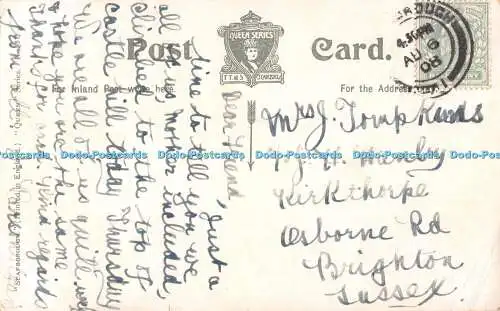 Post Card.
QUEEN SERIES
T.T. & S
For Inland Post
For the Address
4.30PM
AU 6
08
Dear Friend
Just a
line to tell you we
all of us mother included,
Climbed to the top of
castle hill today Thursday
We are all of us quite well
hope you are the same
Thanks for
Kind regards
Mrs J. Tompkins
Kirkthorpe
Osborne Rd
Brighton
Sussex.
Dodo-Postcards Dodo-Postcards Dodo-Postcards Dodo-Postcards Dodo-Postcards Dodo-Postcards